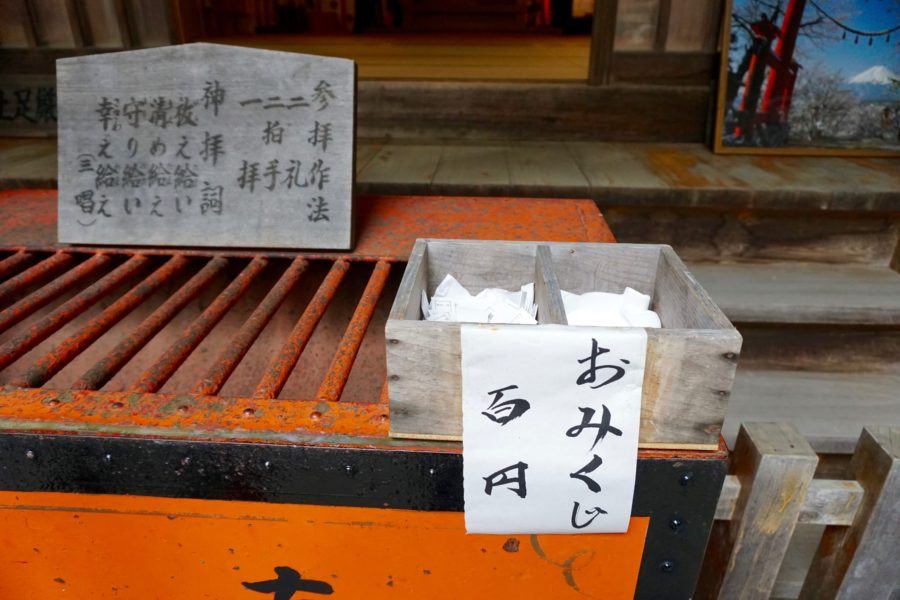 参拝作法
二礼
二拍手
一拝
神拝詞
祓え給い
清め給え
守り給い
幸え給え
(三唱)
おみくじ
百円